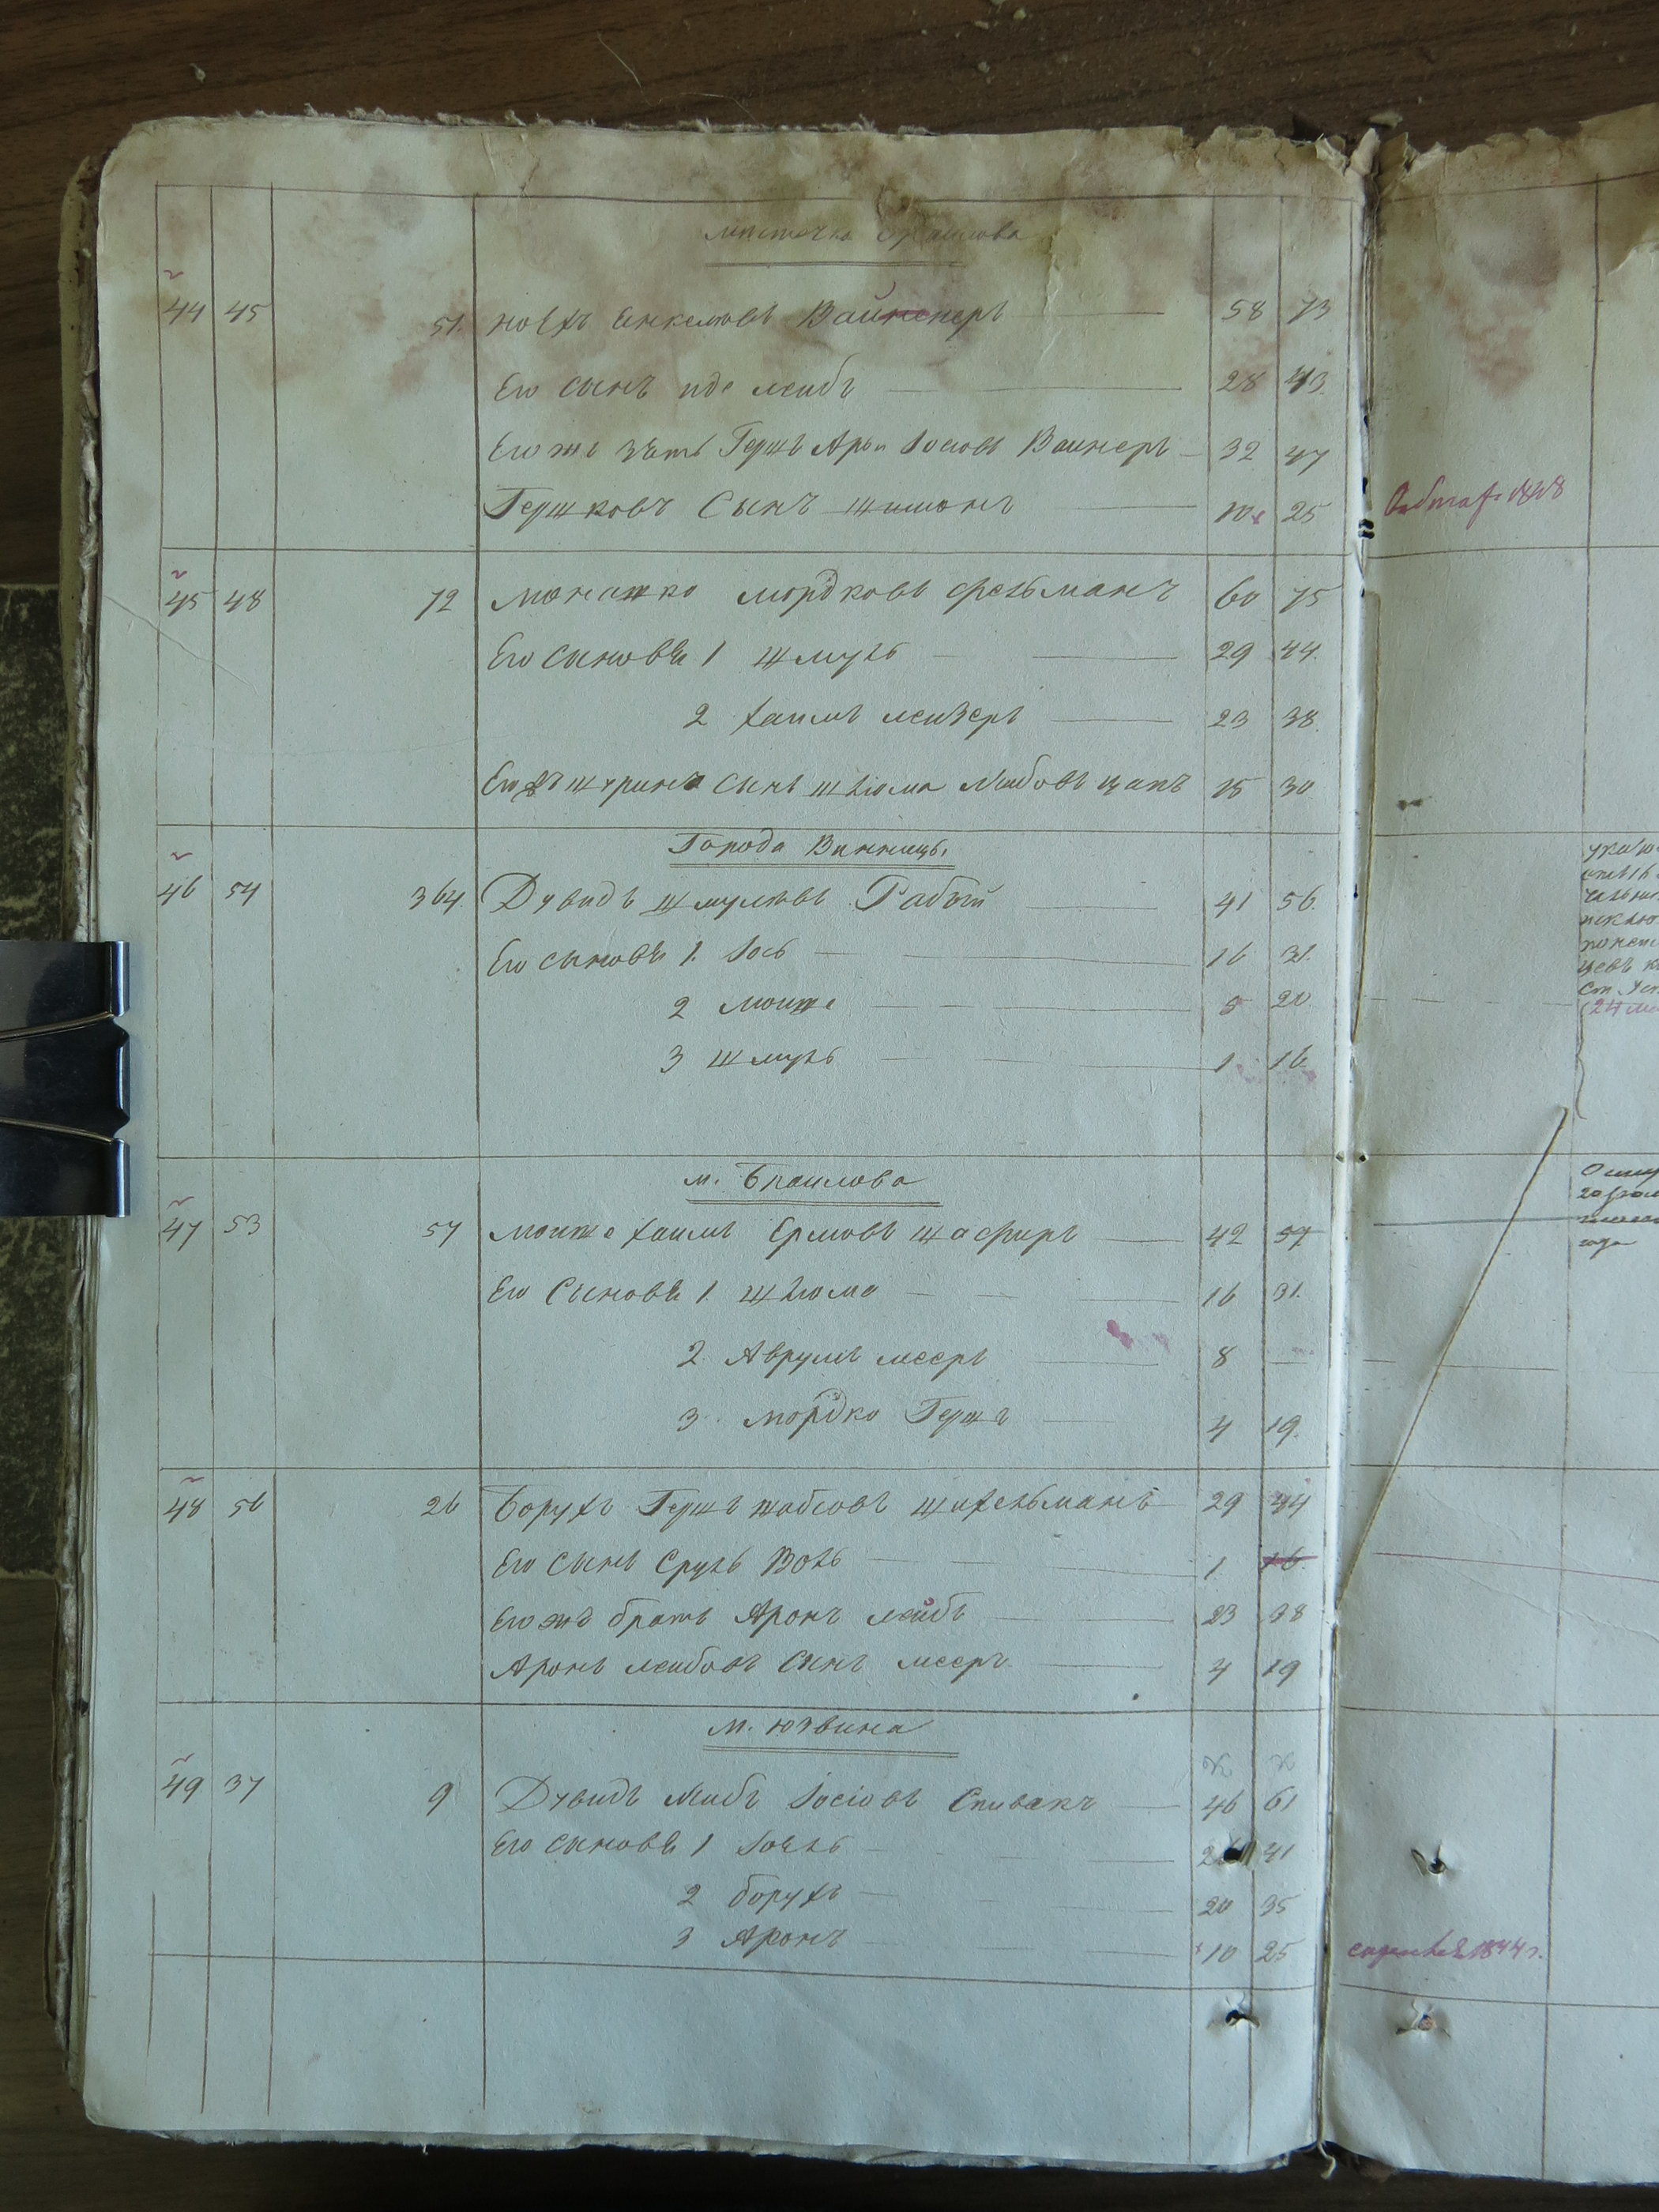 местечка Браилова
44 45 51. Ноехъ Енкелювъ Вайнеръ 58 73
Его сынъ иде лейбъ 28 43.
Его же зять Гершъ Арон Іосіовъ Вайнеръ 32 47
Гершковъ Сынъ шимонъ 10 25 1848
45 48 72 Монашко мордковъ фельманъ 60 75
Его сыновья 1 шмуль 29 44.
2 хаимъ лейзеръ 23 38.
Его сынъ шлюма Лейбовъ цапъ 15 30
Города Винницы.
46 54 364. Дувидъ шмулювъ Рабый 41 56.
Его сыновья 1. Іось 16 31.
2 Мошке 5 20
3 шмуль 1 16.
м. Браилова
47 53 57 Мошке хаимъ Ермовъ шафиръ 42 57
Его Сыновья 1. шлюма 16 31.
2. Аврумъ мееръ 8 —
3. мордко Гершъ 4 19.
48 56 26 Борухъ Гершъ шабсовъ шихельманъ 29 44
Его сынъ Сруль Воль 1 16.
Его же братъ Аронъ лейбъ 23 38
Аронъ лейбовъ сынъ мееръ 4 19
м. Юзвина
49 37 9 Дувидъ Лейбъ Іосіовъ Спивакъ 46 61
Его сыновья 1 Іоель 41
2 борухъ 20 35
3 Аронъ 10 25 1844 г.
года